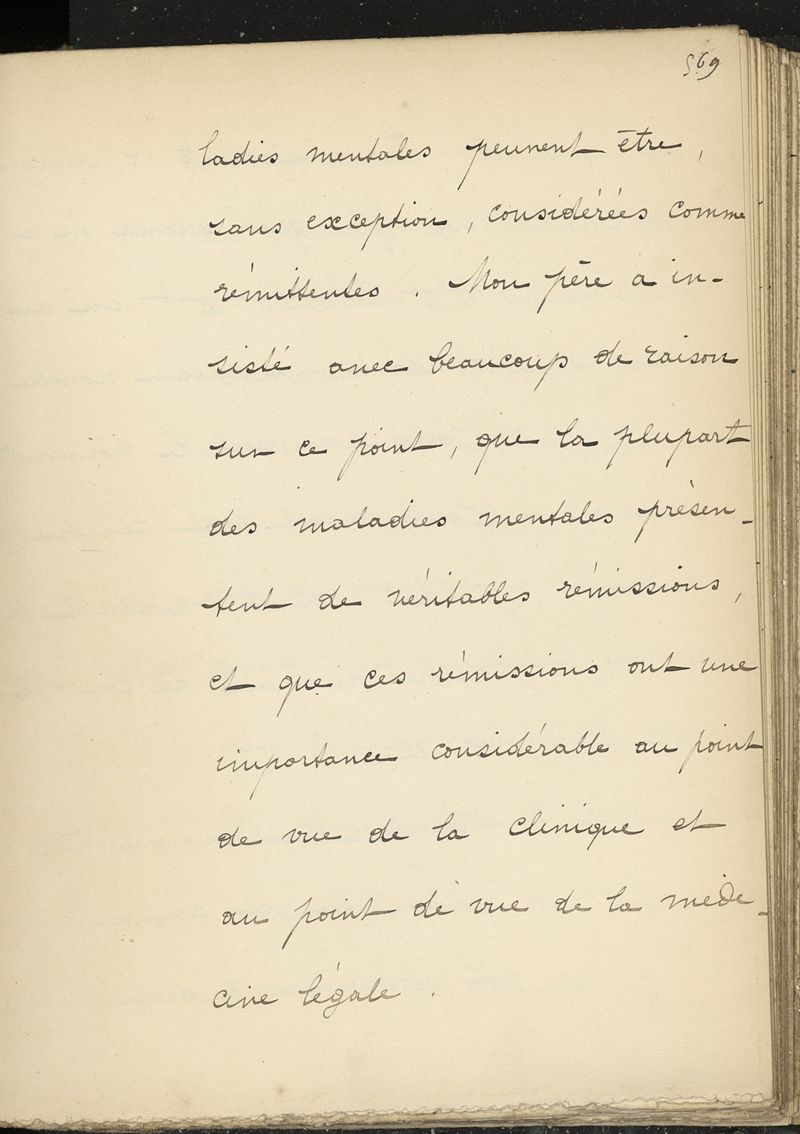 569
ladies mentales peuvent être,
sans exception, considérées comme
rémittentes. Mon père a in-
sisté avec beaucoup de raison
sur ce point, que la plupart
des maladies mentales présen-
tent de véritables rémissions,
et que ces rémissions ont une
importance considérable au point
de vue de la clinique et
au point de vue de la méde-
cine légale.